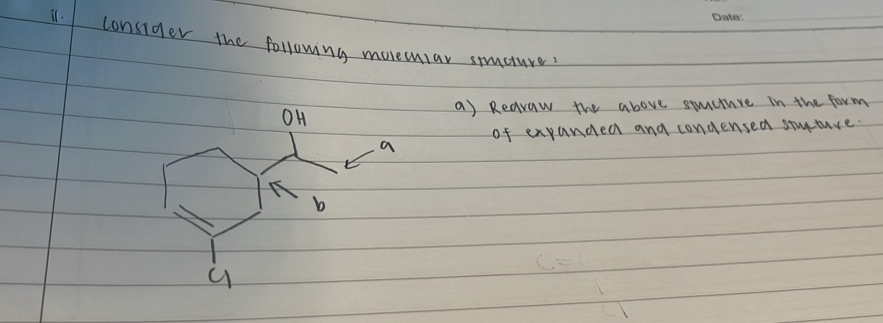 Date:
ii. Consider the following molecular structure:
a) Redraw the above structure in the form
of expanded and condensed structure.
OH
a
b
Cl